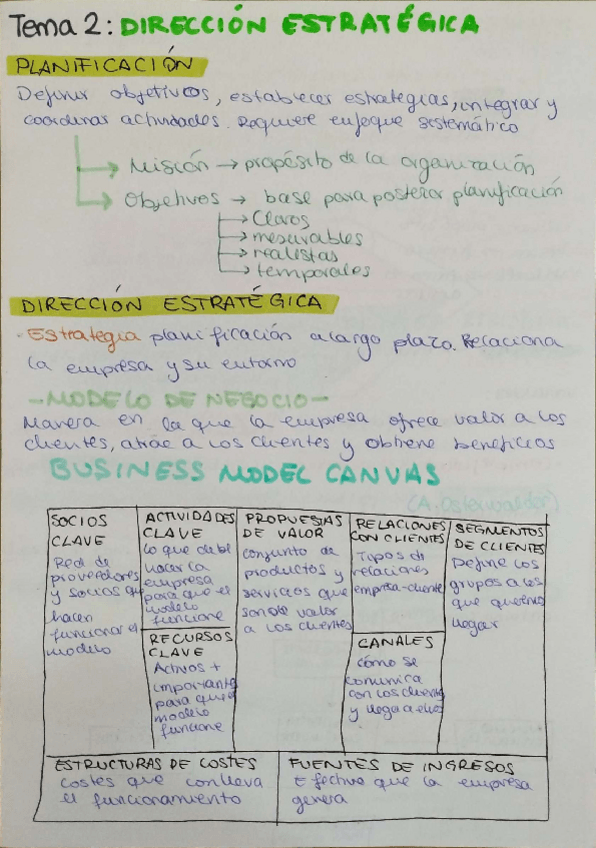 Tema 2: DIRECCIÓN ESTRATÉGICA
PLANIFICACIÓN
Definir objetivos, establecer estrategias, integrar y
coordinar actividades. Requiere enfoque sistemático
Misión → propósito de la organización
Objetivos → base para posterior planificación
→ Claros
→ mesurables
→ realistas
→ temporales
DIRECCIÓN ESTRATÉGICA
· Estrategia planificación a largo plazo. Relaciona
la empresa y su entorno
- MODELO DE NEGOCIO -
Manera en la que la empresa ofrece valor a los
clientes, atrae a los clientes y obtiene beneficios
BUSINESS MODEL CANVAS
(A. Osterwalder)
SOCIOS
CLAVE
Red de
proveedores
y socios que
hacen
funcionar el
modelo
ACTIVIDADES
CLAVE
Lo que debe
hacer la
empresa
para que el
modelo
funcione
RECURSOS
CLAVE
Activos +
importantes
para que el
modelo
funcione
PROPUESTAS
DE VALOR
conjunto de
productos y
servicios que
dan valor
a los clientes
RELACIONES
CON CLIENTES
Tipos de
relaciones
empresa-cliente
CANALES
cómo se
comunica
con los clientes
y llega a ellos
SEGMENTOS
DE CLIENTES
Define los
grupos a los
que queremos
llegar
ESTRUCTURAS DE COSTES
Costes que conlleva
el funcionamiento
FUENTES DE INGRESOS
Efectivo que la empresa
genera